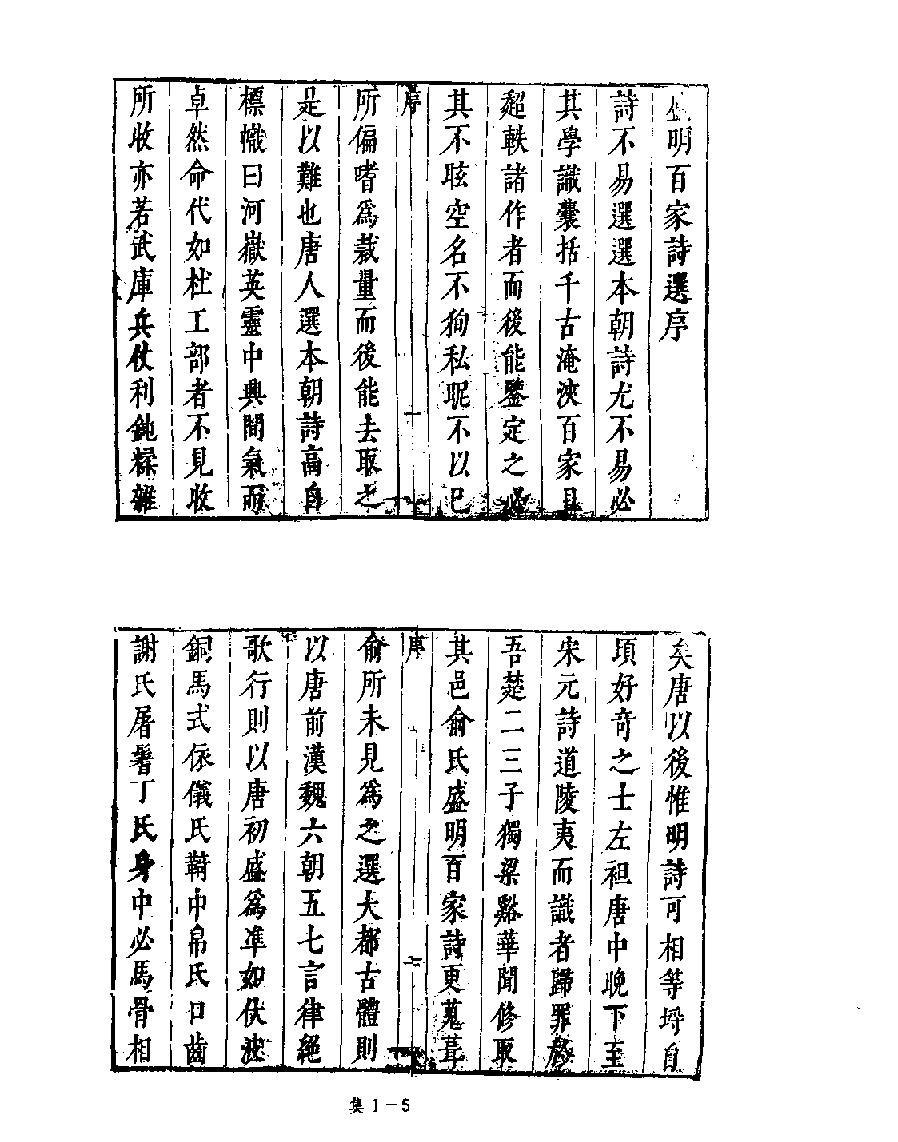 盛明百家詩選序
詩不易選選本朝詩尤不易必
其學識囊括千古淹浹百家且
超軼諸作者而後能鑒定之必
其不眩空名不狥私昵不以已
序
一
所偏嗜爲裁量而後能去取之
是以難也唐人選本朝詩高自
標幟曰河嶽英靈中興間氣而
卓然命代如杜工部者不見收
所收亦若武庫兵仗利鈍糅雜
矣唐以後惟明詩可相等埒自
頃好奇之士左袒唐中晚下至
宋元詩道陵夷而識者歸罪
吾楚二三子獨梁谿華聞修取
其邑俞氏盛明百家詩更蒐葺
序
俞所未見爲之選大都古體則
以唐前漢魏六朝五七言律絕
歌行則以唐初盛爲準如伏波
銅馬式依儀氏䩭中帛氏口齒
謝氏唇鬐丁氏身中必馬骨相
集1－5